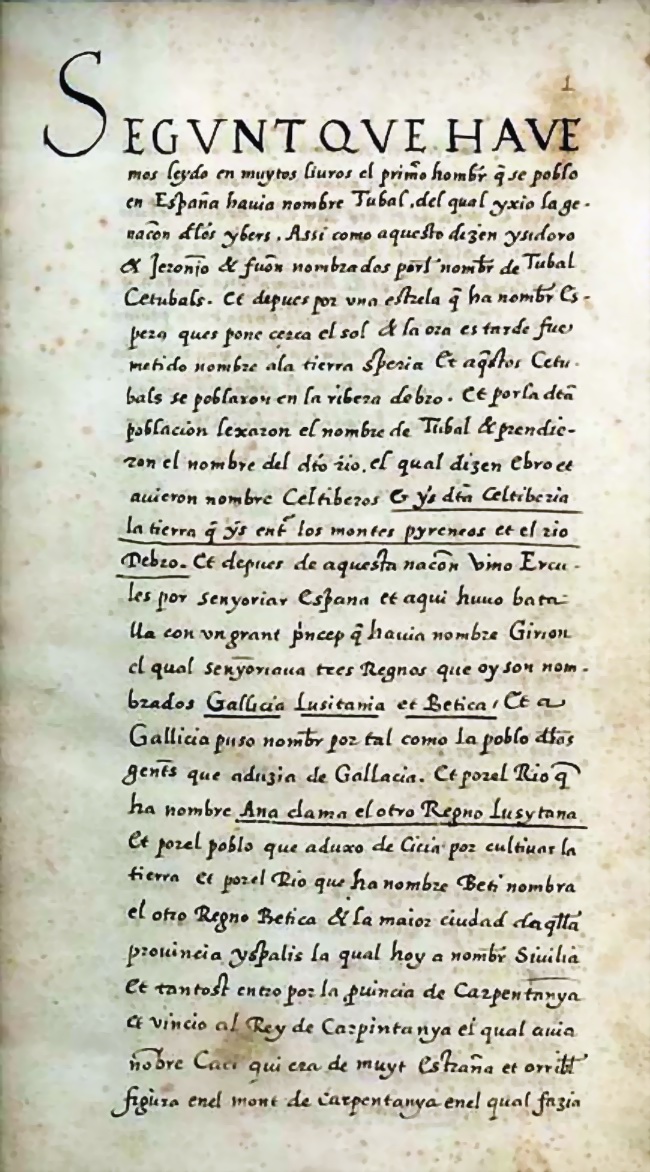 1
SEGVNT QVE HAVE
mos leydo en muytos liuros el primo hombr q̃ se poblo
en España hauia nombre Tubal, del qual yxio la ge-
nacõn dlos ybers. Assi como aquesto dizen ysidoro
& Jeronjo & fuõn nombrados porl nombr de Tubal
Cetubals. Et depues por vna estrela q̃ ha nombr Es-
pera ques pone cerca el sol & la ora es tarde fue
metido nombre ala tierra speria Et aq̃stos Cetu-
bals se poblaron en la ribera debro. Et por la dta
poblacion lexaron el nombre de Tubal & prendie-
ron el nombre del dto rio, el qual dizen Ebro et
auieron nombre Celtiberos Et ys dta Celtiberia
la tierra q̃ ys ent los montes pyreneos et el rio
Debro. Et depues de aquesta nacõn vino Ercu-
les por senyoriar Espana et aqui huuo bata-
lla con vn grant pncep q̃ hauia nombre Girion
el qual senyoriaua tres Regnos que oy son nom-
brados Gallicia Lusitania et Betica, Et a
Gallicia puso nombr por tal como la poblo dlas
gents que aduzia de Gallacia. Et por el Rio q̃
ha nombre Ana clama el otro Regno Lusytana
Et por el poblo que aduxo de Cicia por cultiuar la
tierra et por el Rio que ha nombre Beti nombra
el otro Regno Betica & la maior ciudad daq̃lla
prouincia yspalis la qual hoy a nombr Siuilia
Et tantost entro por la puincia de Carpentanya
et vincio al Rey de Carpintanya el qual auia
nõbre Caci qui era de muyt estraña et orribl
figura en el mont de carpentanya en el qual fazia